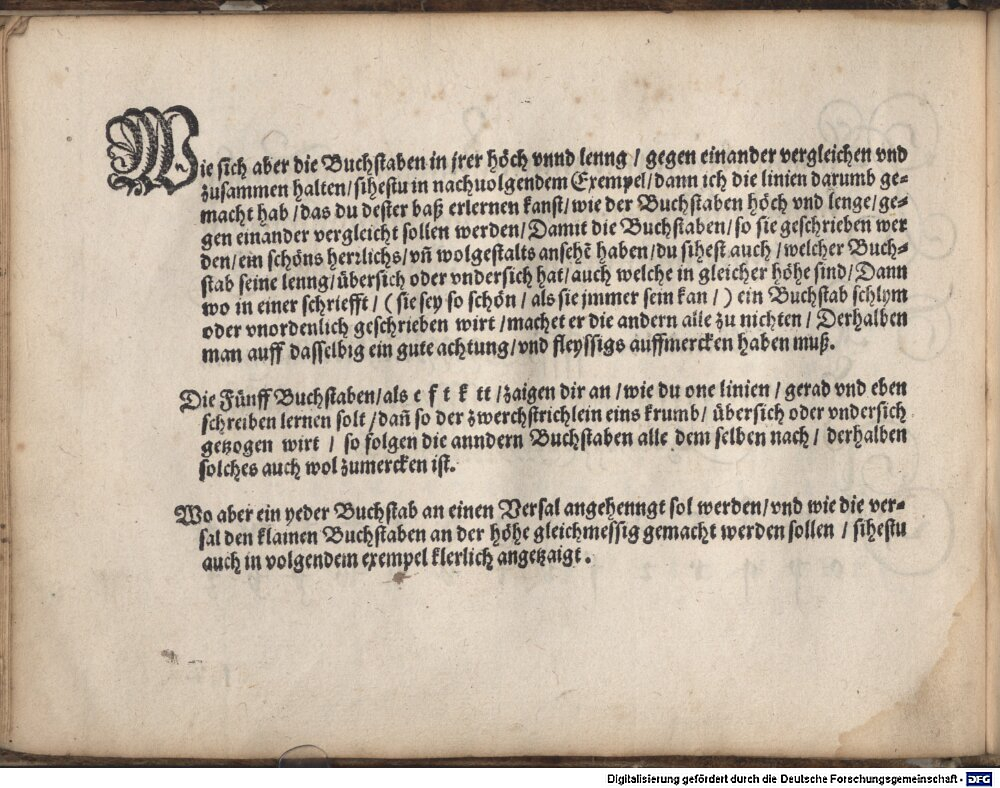 Wie sich aber die Buchstaben in jrer höch vnnd lenng / gegen einander vergleichen vnd
zusammen halten / sihestu in nachuolgendem Exempel / dann ich die linien darumb ge=
macht hab / das du dester baß erlernen kanst / wie der Buchstaben höch vnd lenge / ge=
gen einander vergleicht sollen werden / Damit die Buchstaben / so sie geschrieben wer
den / ein schöns herrlichs / vñ wolgestalts ansehē haben / du sihest auch / welcher Buch=
stab seine lenng / übersich oder vndersich hat / auch welche in gleicher höhe sind / Dann
wo in einer schriefft / ( sie sey so schön / als sie jmmer sein kan / ) ein Buchstab schlym
oder vnordenlich geschrieben wirt / machet er die andern alle zu nichten / Derhalben
man auff dasselbig ein gute achtung / vnd fleyssigs auffmercken haben muß.
Die Fünff Buchstaben / als e f t k tt / zaigen dir an / wie du one linien / gerad vnd eben
schreiben lernen solt / dañ so der zwerchstrichlein eins krumb / übersich oder vndersich
getzogen wirt / so folgen die anndern Buchstaben alle dem selben nach / derhalben
solches auch wol zumercken ist.
Wo aber ein yeder Buchstab an einen Versal angehenngt sol werden / vnd wie die ver=
sal den klainen Buchstaben an der höhe gleichmessig gemacht werden sollen / sihestu
auch in volgendem exempel klerlich angetzaigt.
Digitalisierung gefördert durch die Deutsche Forschungsgemeinschaft - DFG